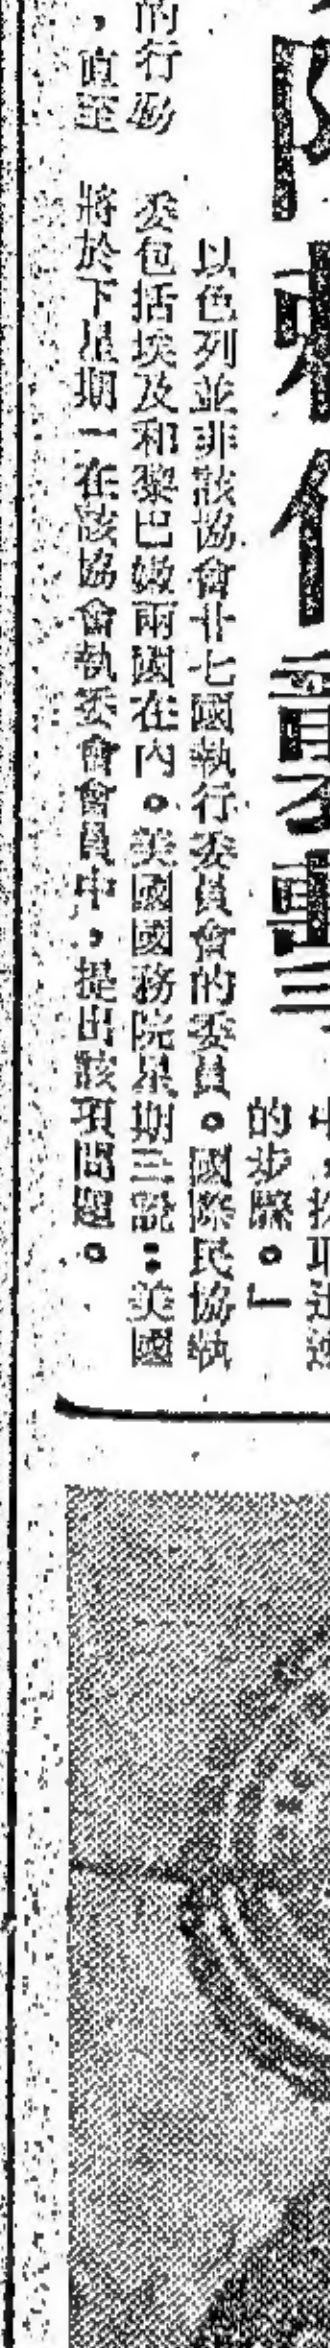 的步驟。」
以色列並非該協會廿七國執行委員會的委員。國際民協執
委包括埃及和黎巴嫩兩國在內。美國國務院星期三說：美國
將於下星期一在該協會執委會會員中，提出該項問題。
的行
，直至